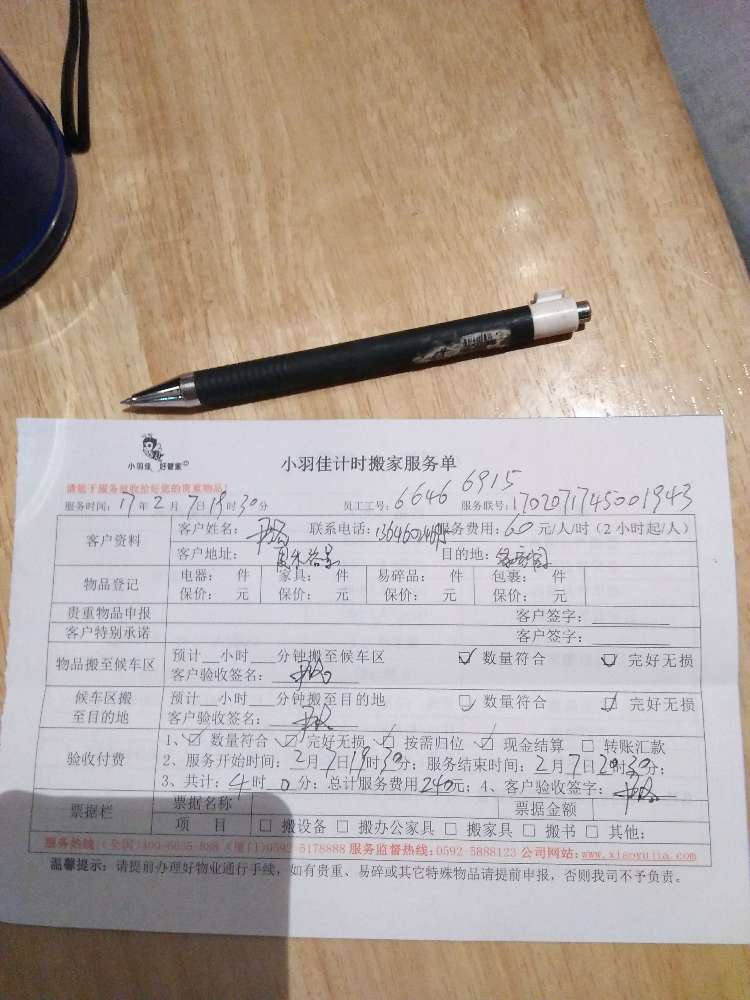 小羽佳 好管家
小羽佳计时搬家服务单
请能于服务验收拾好您的贵重物品!
服务时间: 17年2月7日19时30分 员工工号: 6646 6915 服务联号: 1702071745001943
客户资料
客户姓名: 联系电话: 服务费用: 60 元/人/时(2小时起/人)
客户地址: 目的地:
物品登记
电器: 件 家具: 件 易碎品: 件 包裹: 件
保价: 元 保价: 元 保价: 元 保价: 元
贵重物品申报 客户签字:
客户特别承诺 客户签字:
物品搬至候车区
预计__小时___分钟搬至候车区 ☑ 数量符合 ☑ 完好无损
客户验收签名:
候车区搬至目的地
预计__小时___分钟搬至目的地 ☑ 数量符合 ☑ 完好无损
客户验收签名:
验收付费
1、☑ 数量符合 ☑ 完好无损 ☑ 按需归位 ☑ 现金结算 □ 转账汇款
2、服务开始时间: 2月7日19时30分; 服务结束时间: 2月7日20时30分;
3、共计: 4时0分; 总计服务费用240元; 4、客户验收签字:
票据栏
票据名称 票据金额
项 目 □ 搬设备 □ 搬办公家具 □ 搬家具 □ 搬书 □ 其他:
服务热线: (全国)400-6655-888 (厦门)0592-5178888 服务监督热线: 0592-5888123 公司网站: www.xiaoyujia.com
温馨提示: 请提前办理好物业通行手续, 如有贵重、易碎或其它特殊物品请提前申报, 否则我司不予负责。